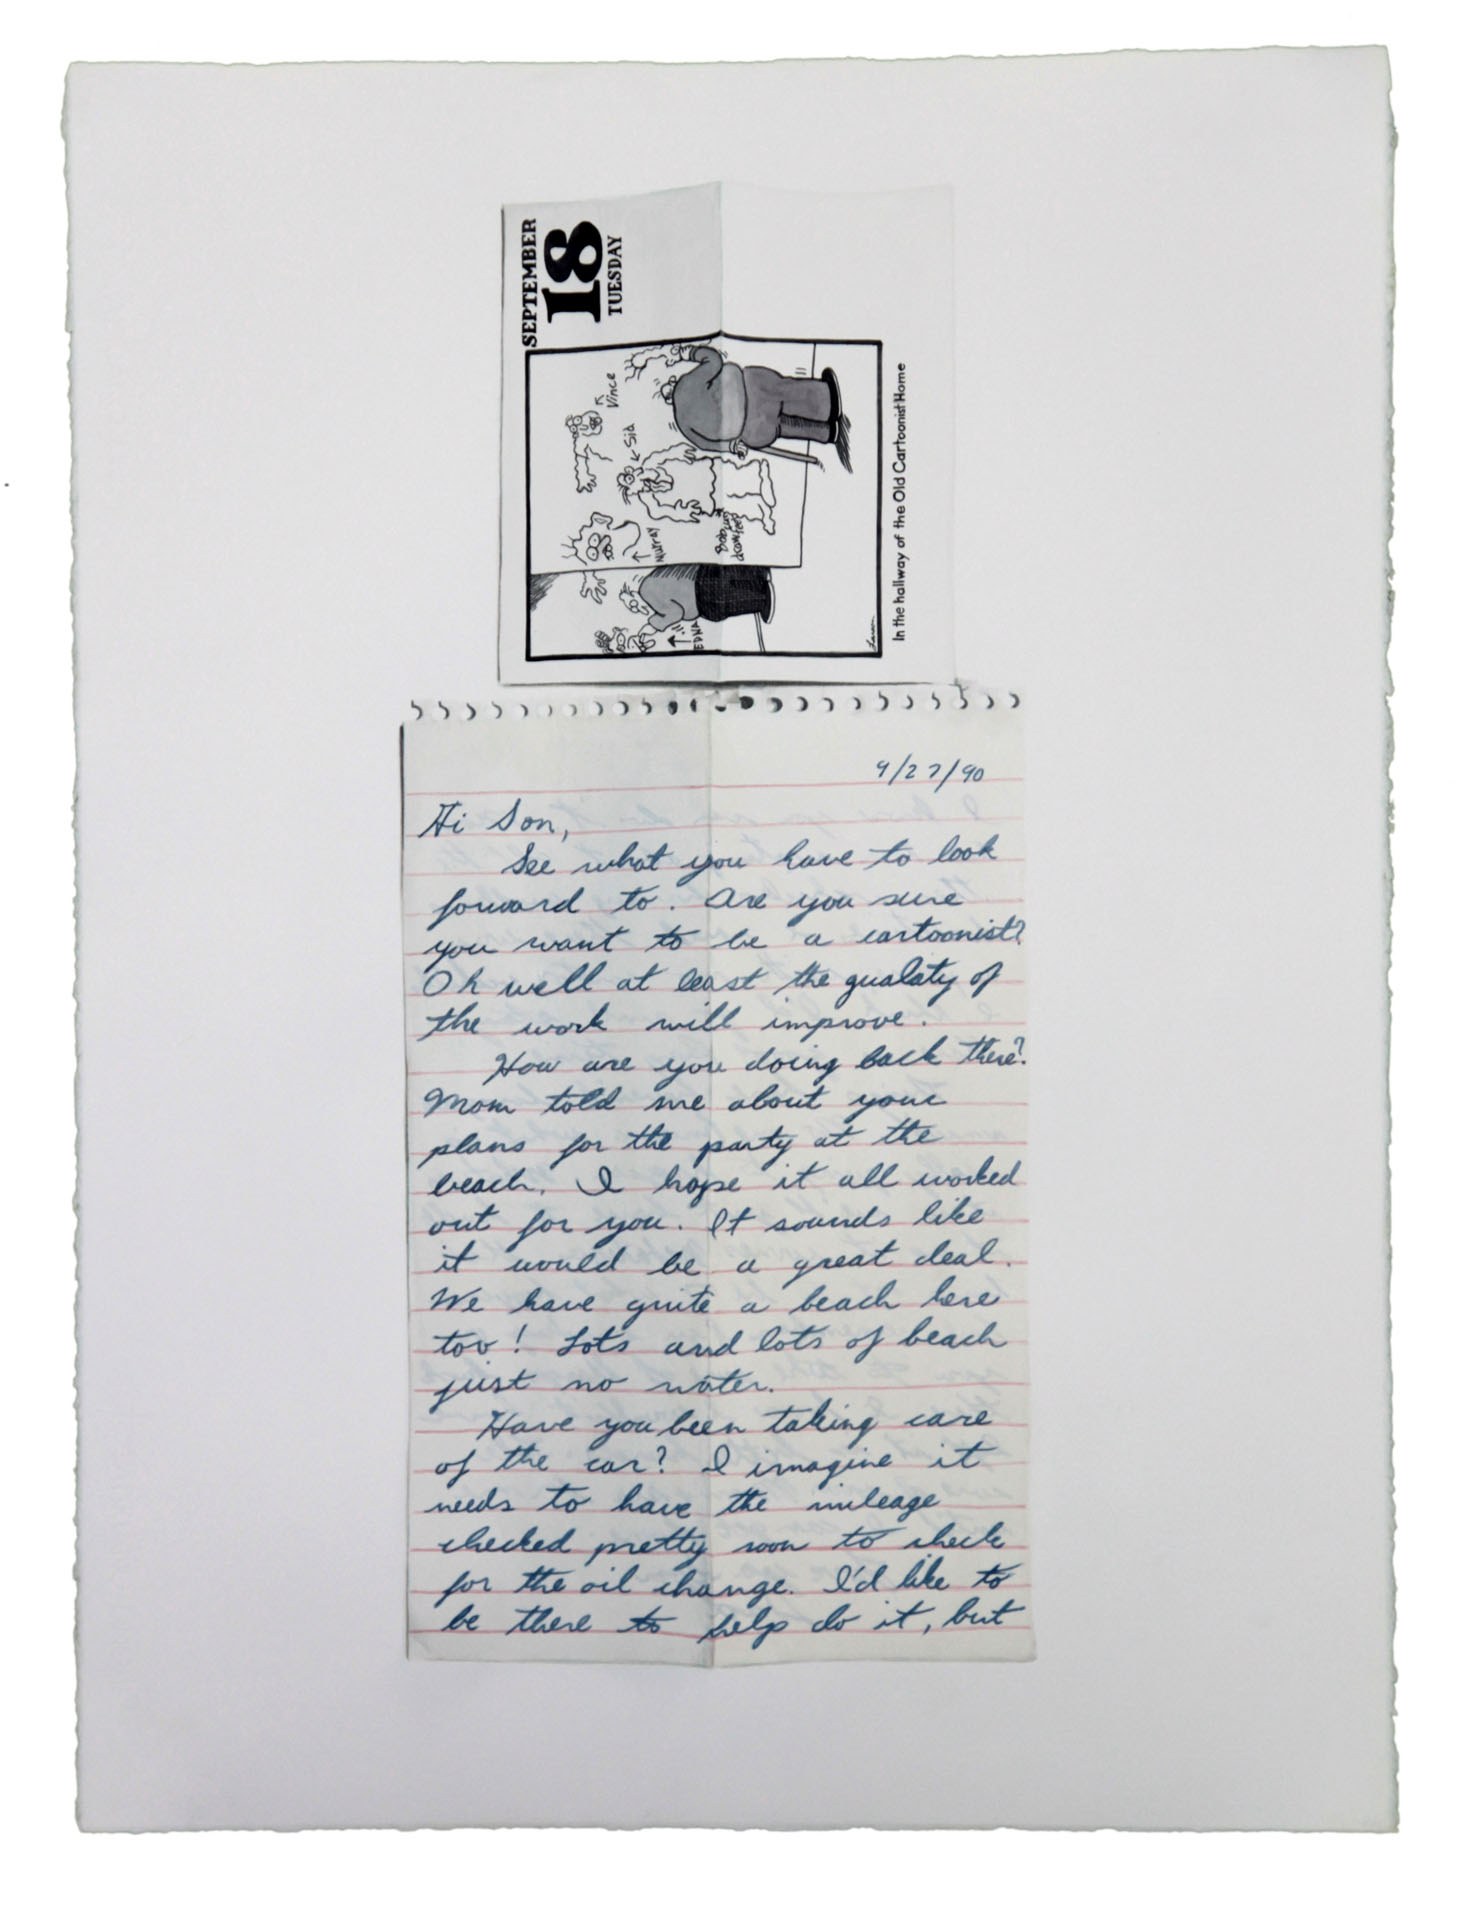 SEPTEMBER
18
TUESDAY
Vince
Sid
Murray
Bob can't draw feet
EDNA
Larson
In the hallway of the Old Cartoonist Home
9/27/90
Hi Son,
See what you have to look
forward to. Are you sure
you want to be a cartoonist?
Oh well at least the qualaty of
the work will improve.
How are you doing back there?
Mom told me about your
plans for the party at the
beach. I hope it all worked
out for you. It sounds like
it would be a great deal.
We have quite a beach here
too! Lots and lots of beach
just no water.
Have you been taking care
of the car? I imagine it
needs to have the mileage
checked pretty soon to check
for the oil change. I'd like to
be there to help do it, but